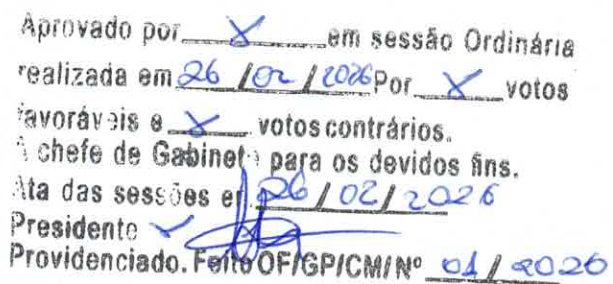 Aprovado por X em sessão Ordinária
realizada em 26 / 02 / 2026 Por X votos
favoráveis e X votos contrários.
À chefe de Gabinete para os devidos fins.
Ata das sessões em 26 / 02 / 2026
Presidente
Providenciado. Feito OF/GP/CM/Nº 01 / 2026